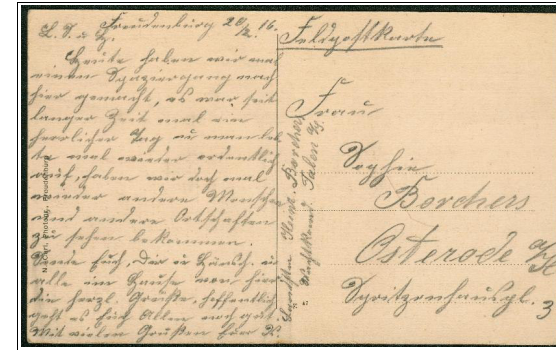 L. S. & H. Freudenburg 20/2. 16.
Heute haben wir mal
einen Spaziergang nach
hier gemacht, es war seit
langer Zeit mal ein
herrlicher Tag u man leb
te mal wieder ordentlich
auf, haben wir doch mal
wieder andere Menschen
und andere Ortschaften
zu sehen bekommen.
Sende Euch, Dir u Hänsch. u
alle im Hause von hier
die herzl. Grüße, hoffentlich
geht es Euch Allen noch gut.
Mit vielen Grüßen
Feldpostkarte
Frau
Sophie
Borchers
Osterode a/H
Spritzenhauspl. 3
Heinr. Borchers
Wachtkomd.